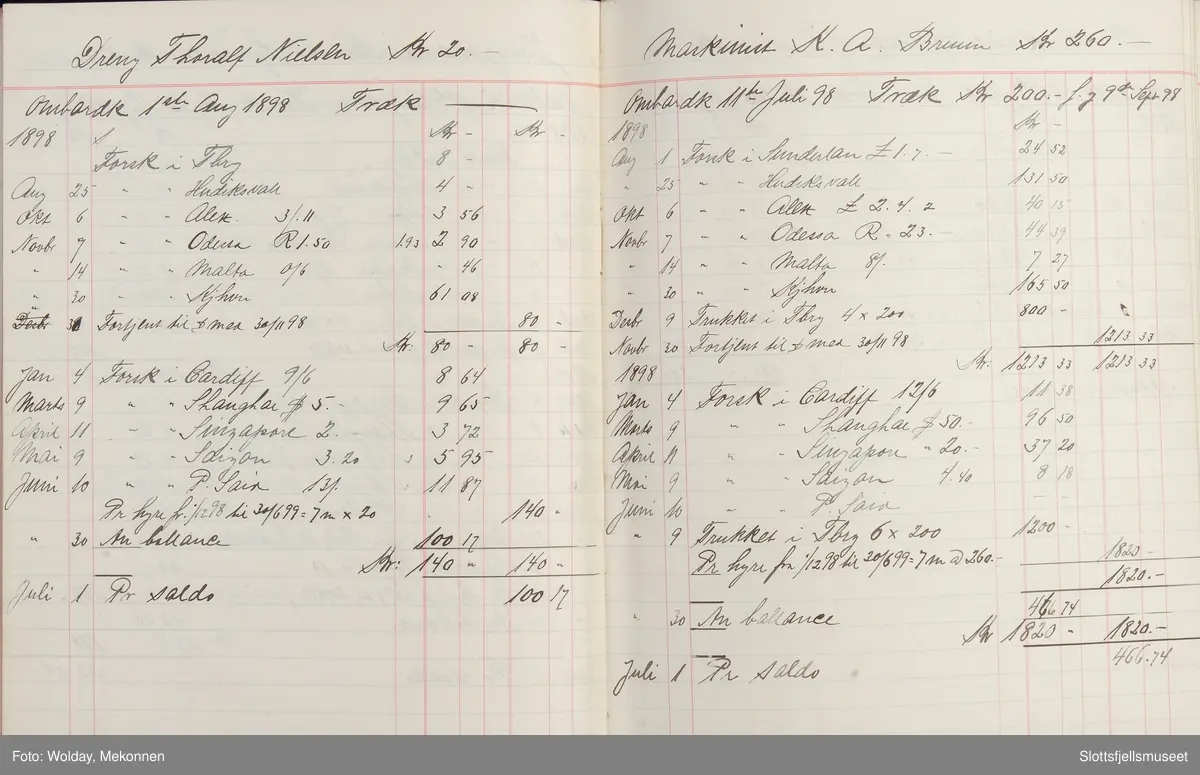 Dreng Thoralf Nielsen Kr 20.–
Ombordk 1ste Aug 1898 Træk ——
1898 Kr – Kr –
Forsk i Tbrg 8 –
Aug 25 " " Hudiksvall 4 –
Okt 6 " " Alex. 3/.11 3 56
Novbr 9 " " Odessa R 1.50 1.93 2 90
" 14 " " Malta 0/6 " 46
" 30 " " Kjhvn 61 08
30 Fortjent til & med 30/11 98 80 "
Kr: 80 " 80 "
Jan 4 Forsk i Cardiff 9/6 8 64
Marts 9 " " Shanghae $ 5.– 9 65
April 11 " " Singapore 2.– 3 72
Mai 9 " " Saigon 3.20 5 95
Juni 10 " " P. Said 13/. 11 87
Pr hyre fr. 1/12 98 til 30/6 99 = 7 m x 20 140 "
" 30 An ballance 100 17
Kr: 140 " 140 "
Juli 1 Pr saldo 100 17
Maskinist K. A. Bruun Kr 260.–
Ombordk 11te Juli 98 Træk Kr 200.– f. g 9de Sept 98
1898 Kr –
Aug 1 Forsk i Sunderlan £ 1.7.– 24 52
" 25 " " Hudiksvall 131 50
Okt 6 " " Alex £ 2.4.2 40 15
Novbr 7 " " Odessa R. 23.– 44 39
" 14 " " Malta 8/. 7 27
" 30 " " Kjhvn 165 50
Decbr 9 Trukket i Tbrg 4 x 200 800 –
Novbr 30 Fortjent til & med 30/11 98 1213 33
Kr: 1213 33 1213 33
1898
Jan 4 Forsk i Cardiff 12/6 11 38
Marts 9 " " Shanghae $ 50.– 96 50
April 11 " " Singapore " 20.– 37 20
Mai 9 " " Saigon 4.40 8 18
Juni 10 " " P. Said – –
" 9 Trukket i Tbrg 6 x 200 1200 –
Pr hyre fra 1/12 98 til 30/6 99 = 7 m a 260.– 1820 –
1820.–
" 30 An ballance 466 74
Kr 1820 – 1820.–
Juli 1 Pr saldo 466.74
Foto: Wolday, Mekonnen
Slottsfjellsmuseet